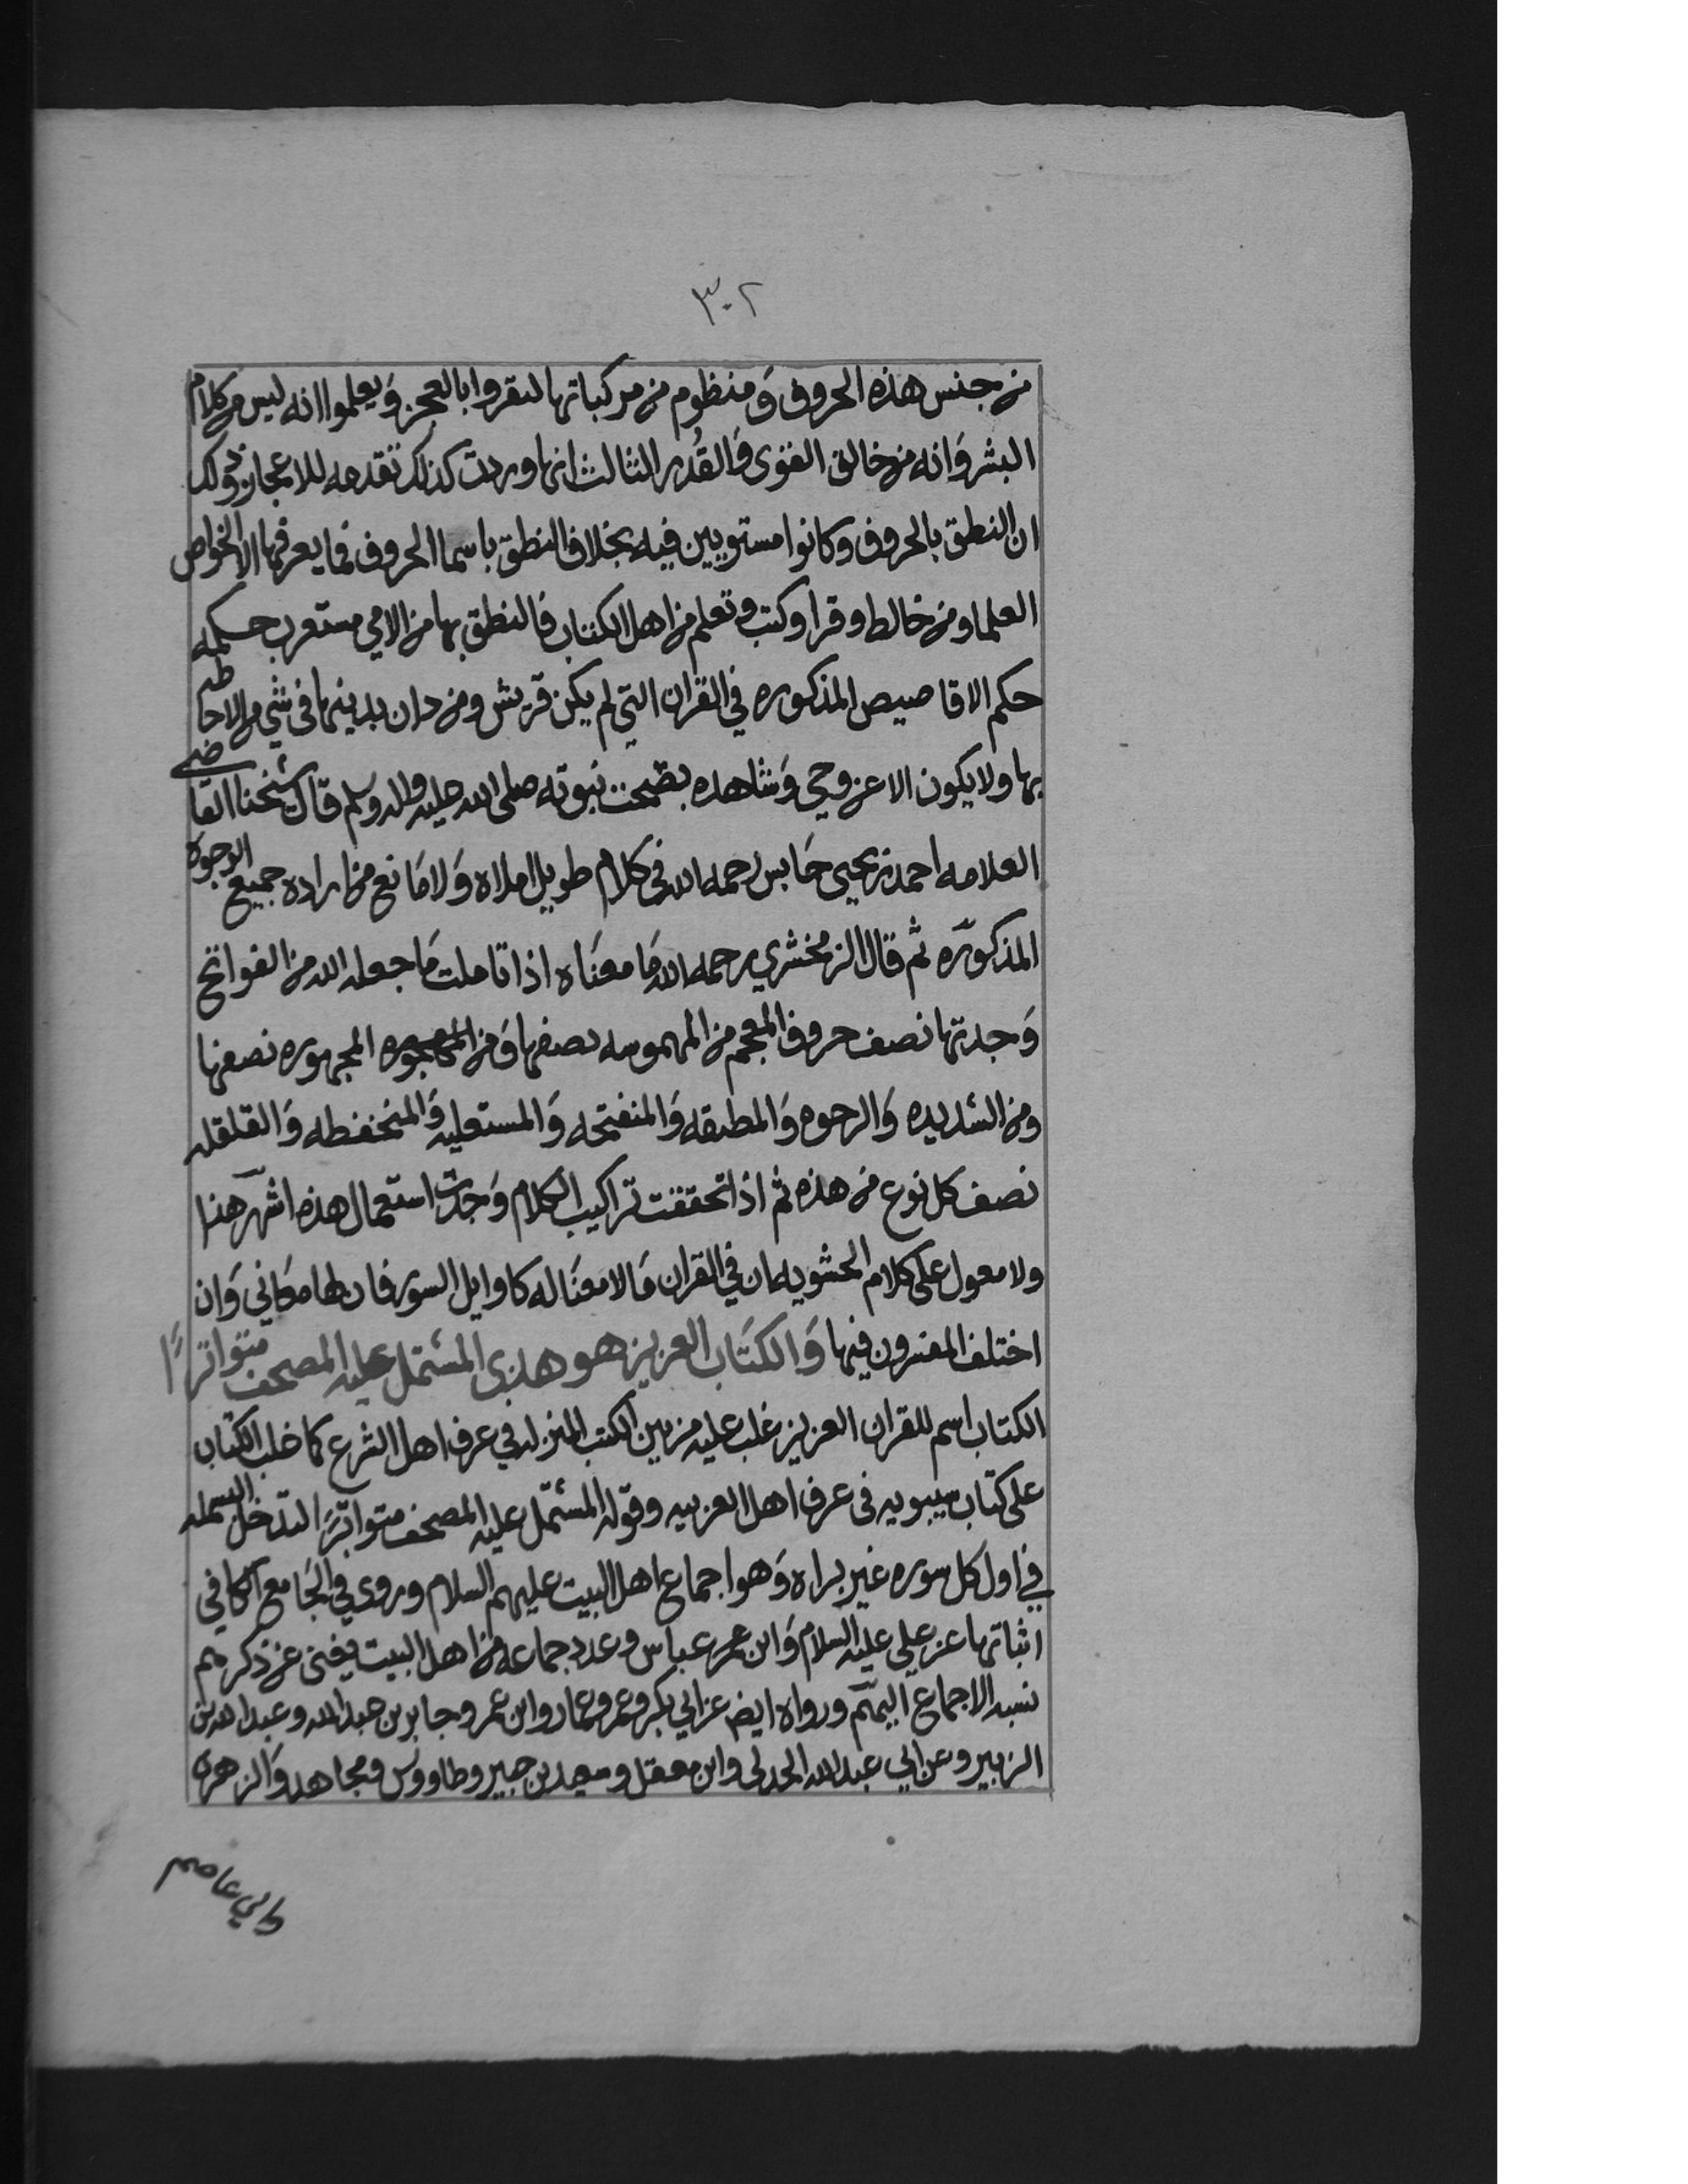 ٣٠٢
من جنس هذه الحروف وَمنظوم من مركباتها ليقروا بالعجز وَيعلموا انه ليس من كلام
البشر وَانه من خالق القوى وَالقُدر الثالث انها وردت كذلك تقدمه للاعجاز وذلك
ان النطق بالحروف وكانوا مستويين فيه بخلاف النطق باسما الحروف فما يعرفها الا الخواص
العلما ومن خالط وقرا وكتب وتعلم من اهل الكتاب فالنطق بها من الامي مستغرب حكمه
حكم الاقاصيص المذكوره في القران التي لم يكن قريش ومن دان بدينها في شي من الاحاطه
بها ولا يكون الا عن وحي وَشاهده بصحت نبوته صلى الله عليه واله وسلم قال شيخنا القاضي
العلامه احمد بن يحيى حَابس رحمه الله في كلام طويل املاه وَلا مَانع من اراده جميع الوجوه
المذكوره ثم قال الزمخشري رحمه الله مَا معنَاه اذا تاملت مَا جعله الله من الفواتح
وَجدتها نصف حروف المعجم من المهموسه نصفها وَمن المجهوره نصفها
ومن الشديده وَالرخوه وَالمطبقه وَالمنفتحه وَالمستعليه وَالمنخفظه وَالقلقله
نصف كل نوع من هذه ثم اذا تحققت تراكيب الكلام وَجدت استعمال هذه اشهر هذا
ولا معول على كلام الحشويه ان في القران مَا لا معنَا له كاوايل السور فان لها معَاني وَان
اختلف المفسرون فيها وَالكتَاب العزيز هو هذى المشتمل عليه المصحف متواترًا
الكتاب اسم للقران العزيز غلب عليه من بين الكتب المنزله في عرف اهل الشرع كما غلب الكتاب
على كتاب سيبويه في عرف اهل العربيه وقوله المشتمل عليه المصحف متواترًا لتدخل البسمله
في اول كل سوره غير براه وَهو اجماع اهل البيت عليهم السلام وروي في الجَامع الكافي
اثباتها عن علي عليه السلام وَابن عمر عباس وعدد جماعه من اهل البيت يغني عن ذكرهم
نسبه الاجماع اليهم ورواه ايض عن ابي بكر وعمر وعمار وابن عمر وجابر بن عبدالله وعبدالله بن
الزبير وعن ابي عبدالله الجدلي وابن معقل وسعيد بن جبير وطاووس ومجاهد وَالزهري
وابي عاصم